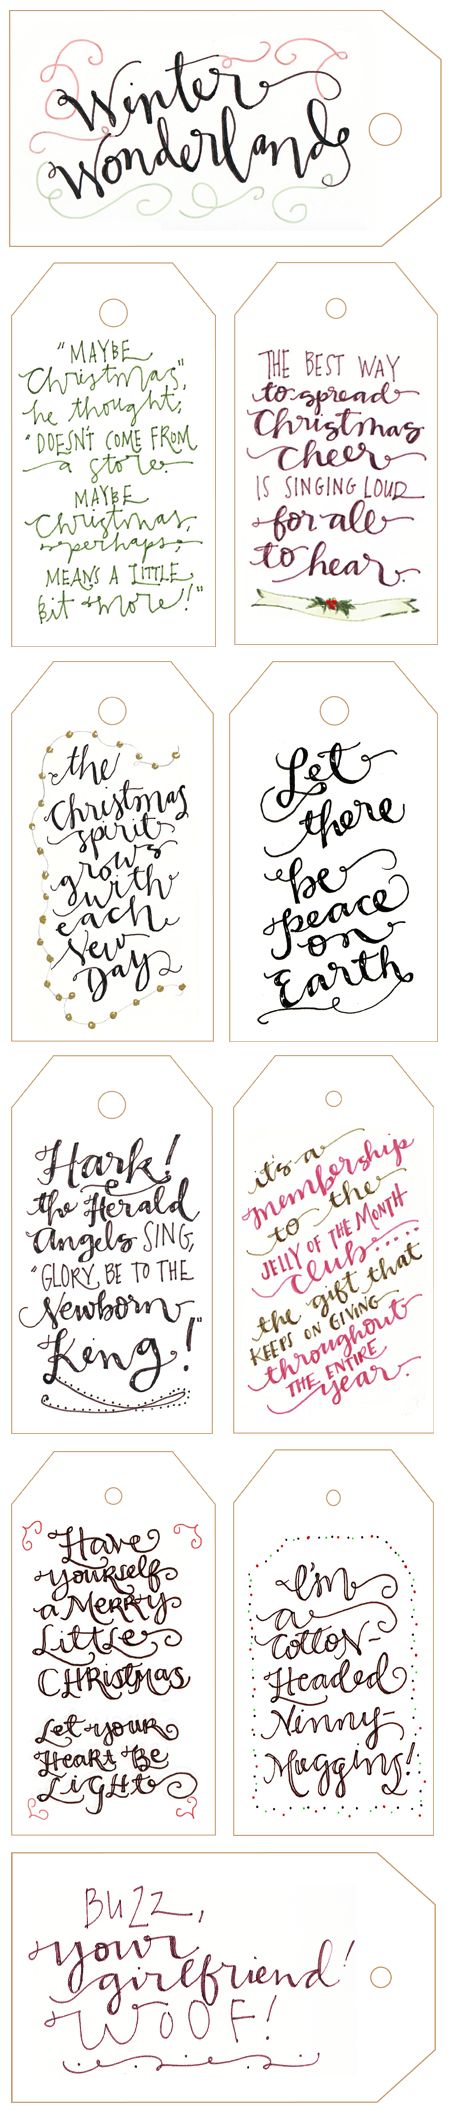 Winter
Wonderland
"MAYBE
Christmas",
he thought,
"DOESN'T COME FROM
a store.
MAYBE
Christmas,
perhaps,
MEANS A LITTLE
Bit more!!"
THE BEST WAY
to spread
Christmas
Cheer
IS SINGING LOUD
for all
to hear.
the
Christmas
spirit
grows
with
each
New
Day
Let
there
be
peace
on
Earth
Hark!
the Herald
Angels SING,
"GLORY BE TO THE
Newborn
King!"
it's a
membership
to the
JELLY OF THE MONTH
club.....
the gift that
KEEPS ON GIVING
throughout
THE ENTIRE
year.
Have
yourself
a Merry
Little
CHRISTMAS
Let your
Heart Be
Light
I'm
a
Cotton-
Headed
Ninny-
Muggins!
BUZZ,
your
girlfriend!
WOOF!